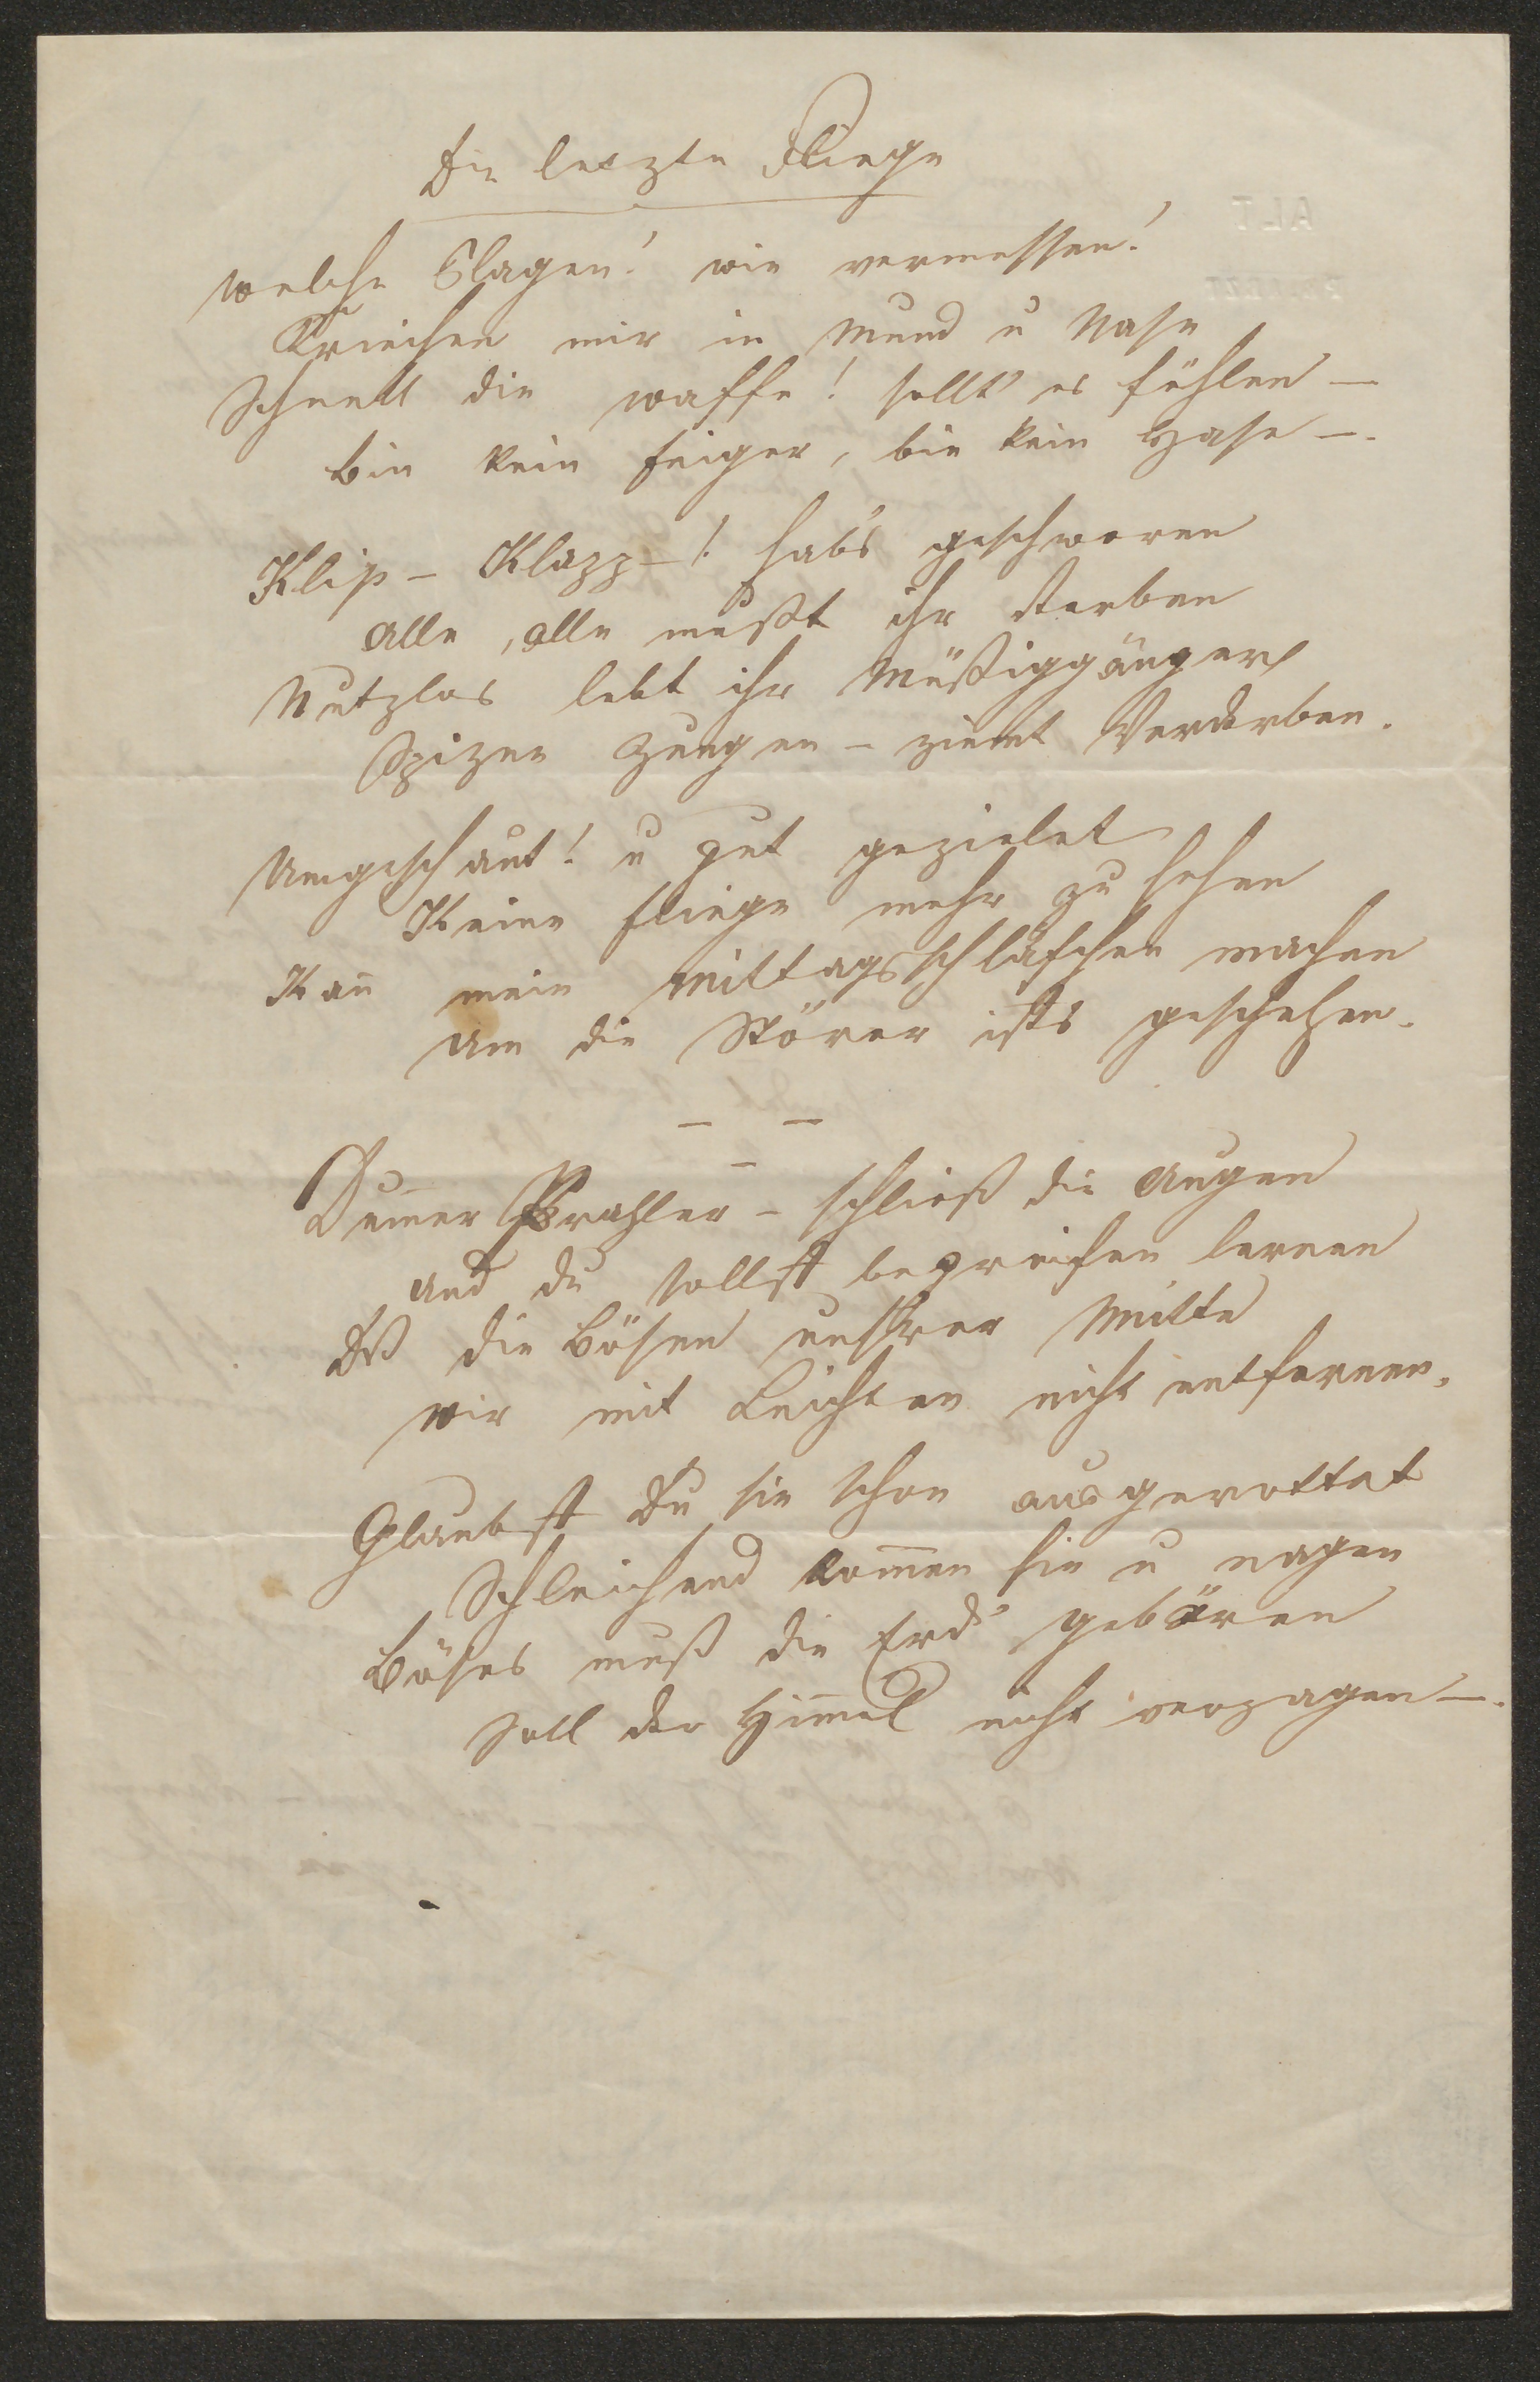 Die letzte Fliege
Welche Plagen! wie vermessen!
Kriechen mir in Mund u Nase
Schnell die Waffe! sollt es fühlen –
Bin kein Feiger, bin kein Hase –.
Klip – Klapp –! habs geschworen
Alle, alle mußt ihr sterben
Nutzlos lebt ihr Müßiggänger
Spizen Zungen – ziemt Verderben.
Umgeschaut! u gut gezielet
Keine Fliege mehr zu sehen
Kan̄ mein Mittagsschläfchen machen
Um die Störer ists geschehen.
– –
–
Dum̄er Prahler – schließ die Augen
Und du sollst begreifen lernen
Dß die Bösen unsrer Mitte
Wir mit Leichten nicht entfernen.
Glaubst Du sie schon ausgerottet
Schleichend kom̄en sie u nagen
Böses muß die Erd' gebären
Soll der Him̄el nicht verzagen –.
ALT